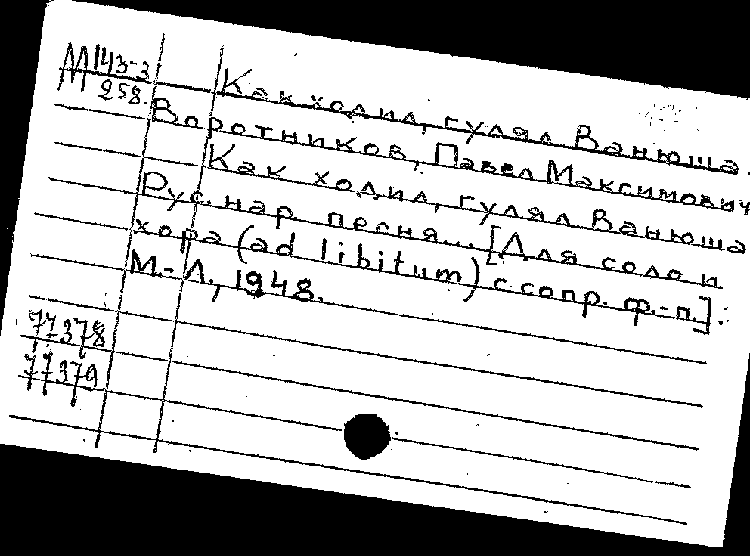 М 143-3
258.
Как ходил, гулял Ванюша.
Воротников, Павел Максимович
Как ходил, гулял Ванюша
Рус. нар. песня... [Для соло и
хора (ad libitum) с сопр. ф.-п.].
М.-Л., 1948.
77378
77379